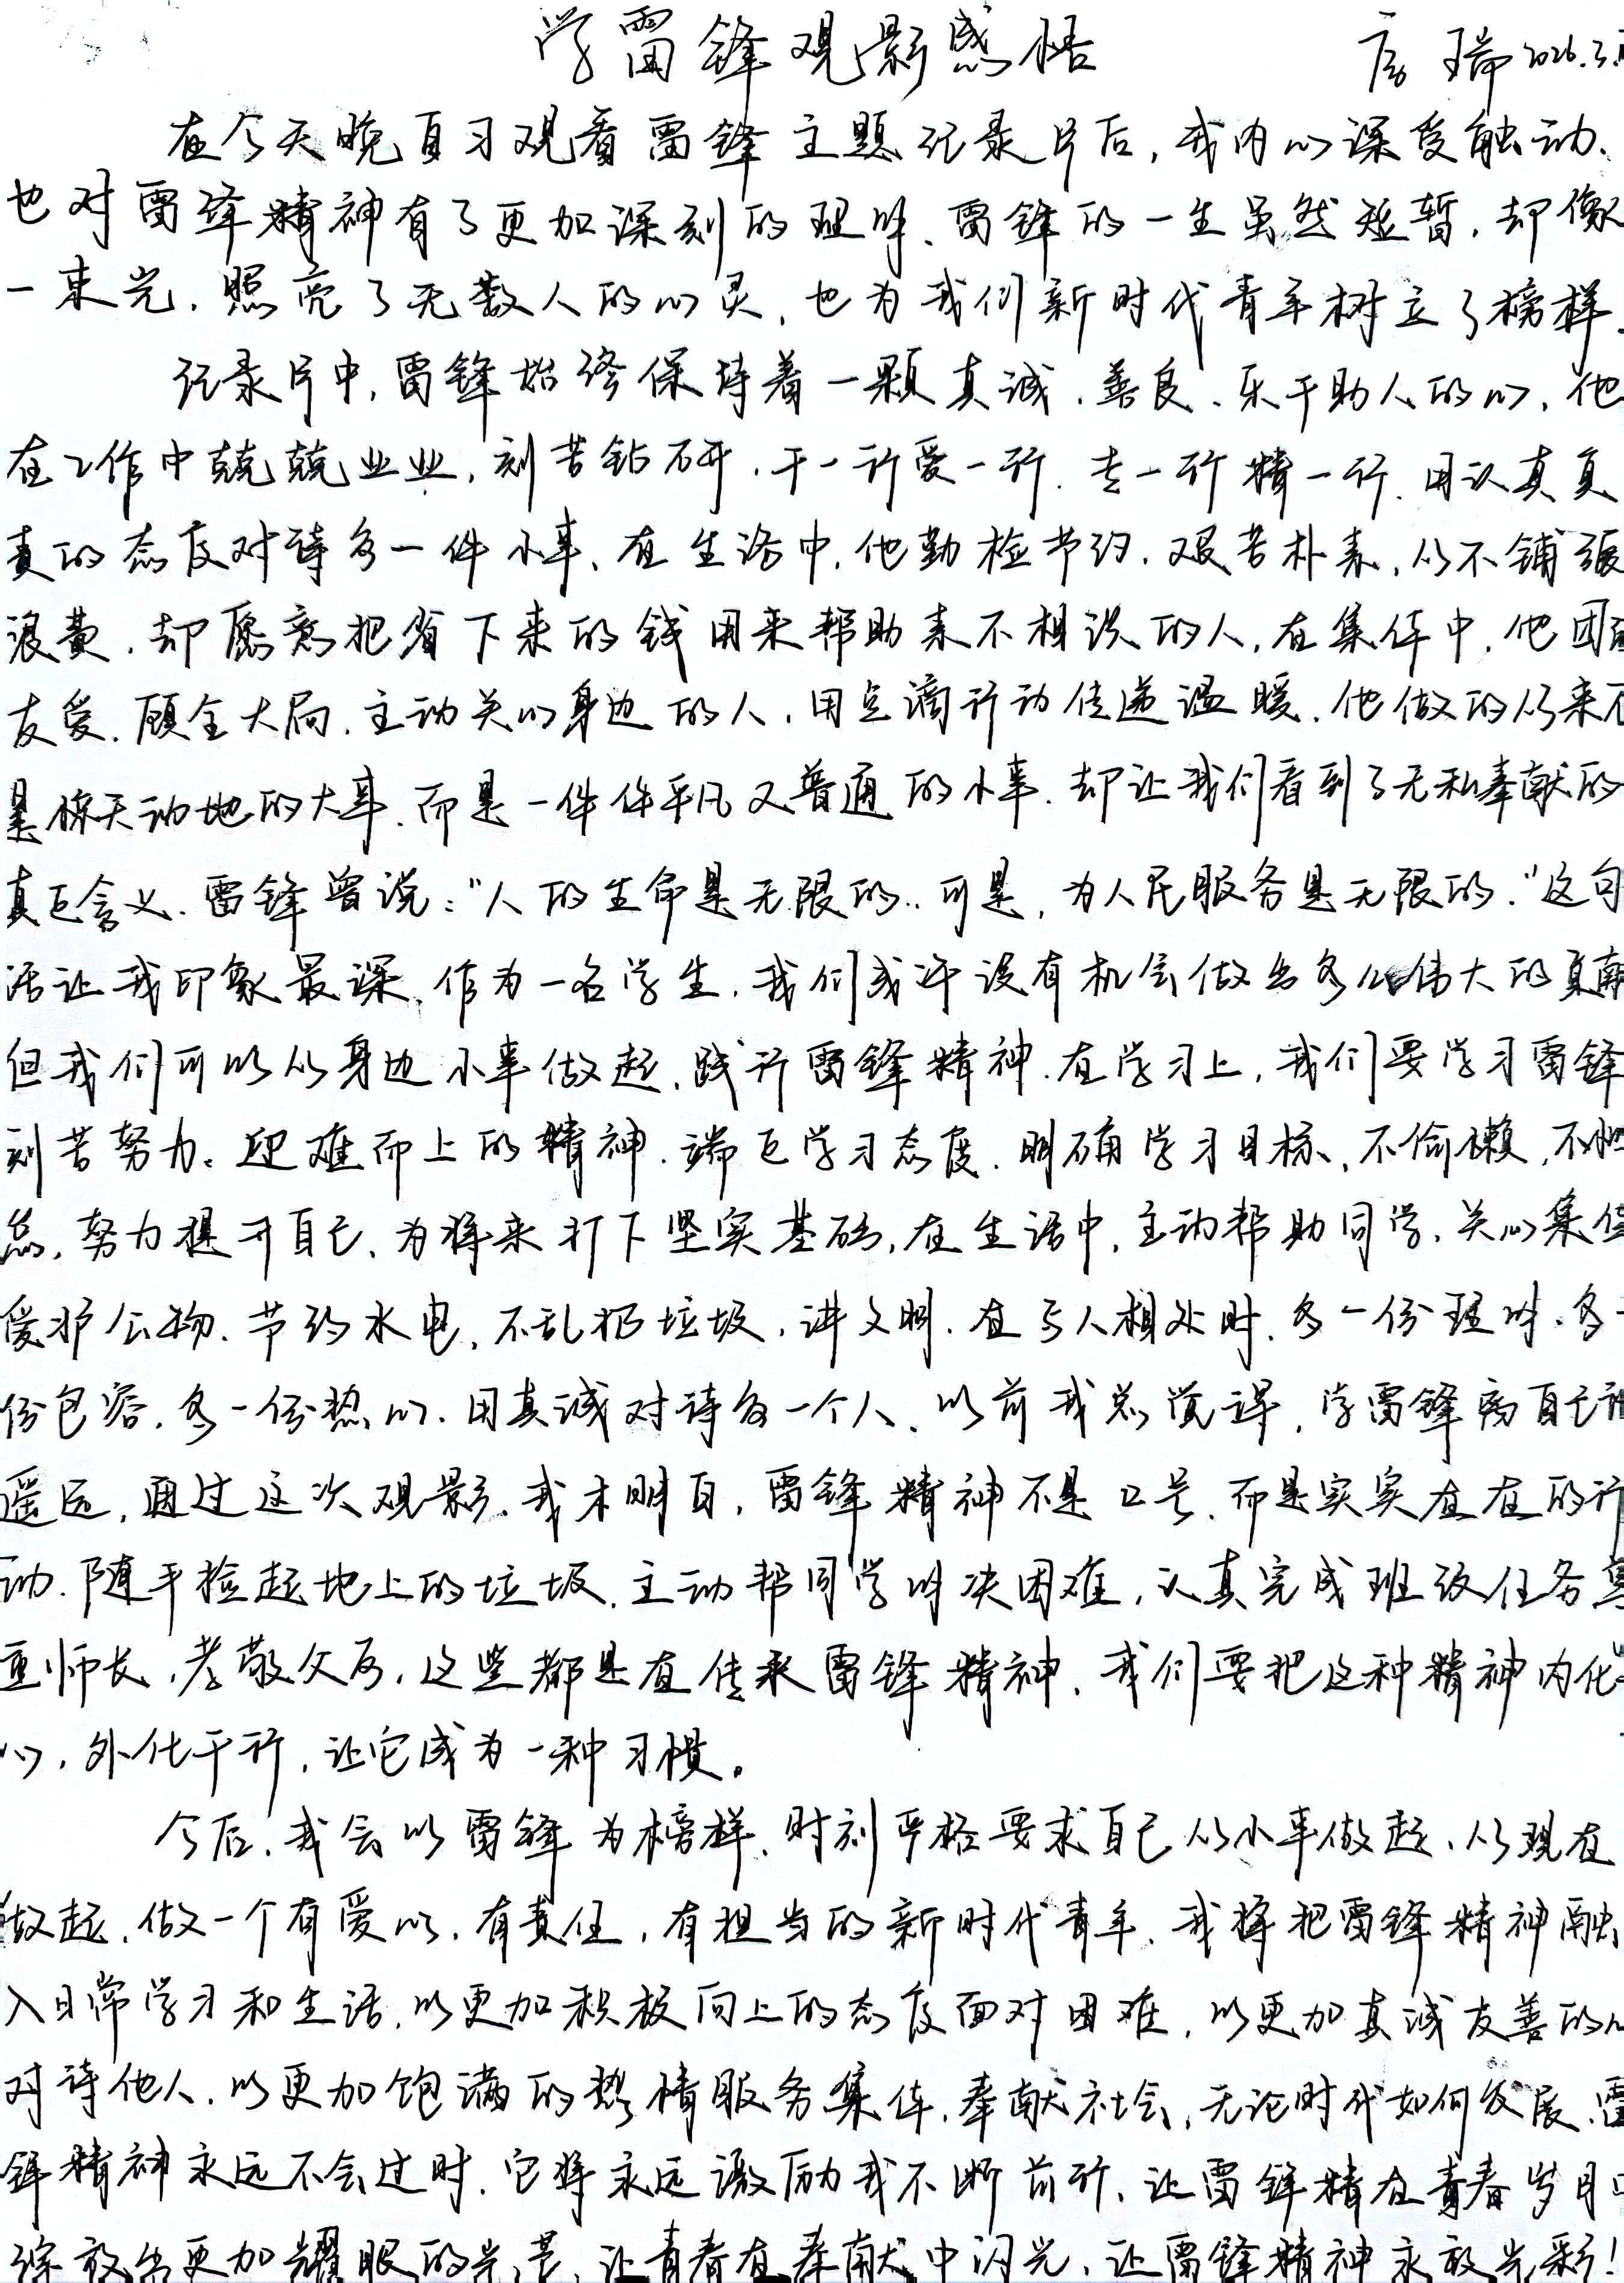 学雷锋观影感悟 房瑞 2026.3.
在今天晚自习观看雷锋主题记录片后,我内心深受触动、
也对雷锋精神有了更加深刻的理解、雷锋的一生虽然短暂,却像
一束光,照亮了无数人的心灵,也为我们新时代青年树立了榜样.
记录片中,雷锋始终保持着一颗真诚、善良、乐于助人的心,他
在工作中兢兢业业,刻苦钻研,干一行爱一行.专一行精一行.用认真负
责的态度对待每一件小事、在生活中,他勤俭节约.艰苦朴素,从不铺张
浪费,却愿意把省下来的钱用来帮助素不相识的人,在集体中,他团
友爱.顾全大局.主动关心身边的人,用点滴行动传递温暖.他做的从来不
是惊天动地的大事.而是一件件平凡又普通的小事.却让我们看到了无私奉献的
真正含义.雷锋曾说:"人的生命是无限的..可是,为人民服务是无限的."这句
话让我印象最深,作为一名学生,我们或许没有机会做出多么伟大的贡献
但我们可以从身边小事做起,践行雷锋精神.在学习上,我们要学习雷锋
刻苦努力。迎难而上的精神.端正学习态度.明确学习目标、不偷懒,不
怠,努力提升自己、为将来打下坚实基础,在生活中,主动帮助同学,关心集体
爱护公物、节约水电,不乱扔垃圾,讲文明.在与人相处时.多一份理解.多
份包容,多一份热心.用真诚对待每一个人、以前我总觉得,学雷锋离自己
遥远,通过这次观影,我才明白,雷锋精神不是口号.而是实实在在的行
动.随手捡起地上的垃圾.主动帮同学解决困难,认真完成班级任务尊
重师长,孝敬父母,这些都是在传承雷锋精神、我们要把这种精神内化
心,外化于行,让它成为一种习惯。
今后,我会以雷锋为榜样、时刻严格要求自己从小事做起、从现在
做起,做一个有爱心,有责任,有担当的新时代青年.我将把雷锋精神融
入日常学习和生活,以更加积极向上的态度面对困难,以更加真诚友善的心
对待他人,以更加饱满的热情服务集体,奉献社会,无论时代如何发展.雷
锋精神永远不会过时.它将永远激励我不断前行、让雷锋精在青春岁月中
绽放出更加耀眼的光芒,让青春在奉献中闪光、让雷锋精神永放光彩!